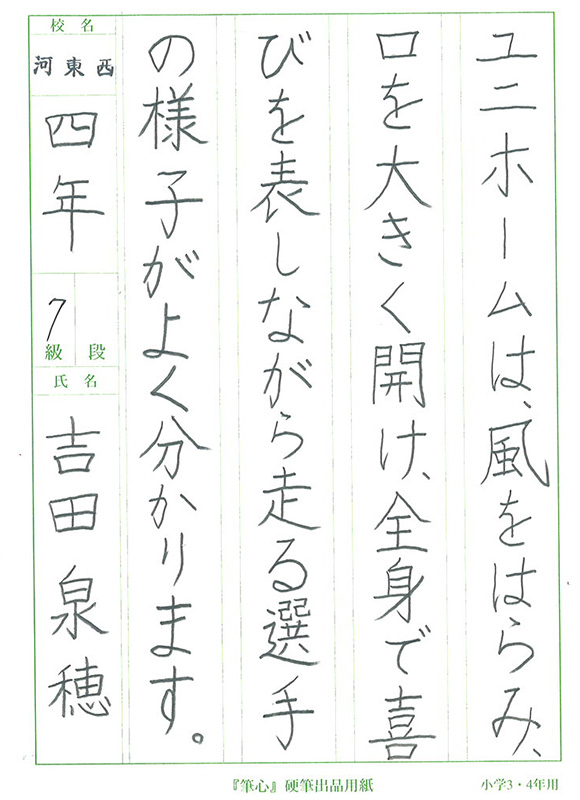 ユニホームは、風をはらみ、
口を大きく開け、全身で喜
びを表しながら走る選手
の様子がよく分かります。
校名
河東西
四年
7
級 段
氏名
吉田泉穂
『筆心』硬筆出品用紙
小学3・4年用